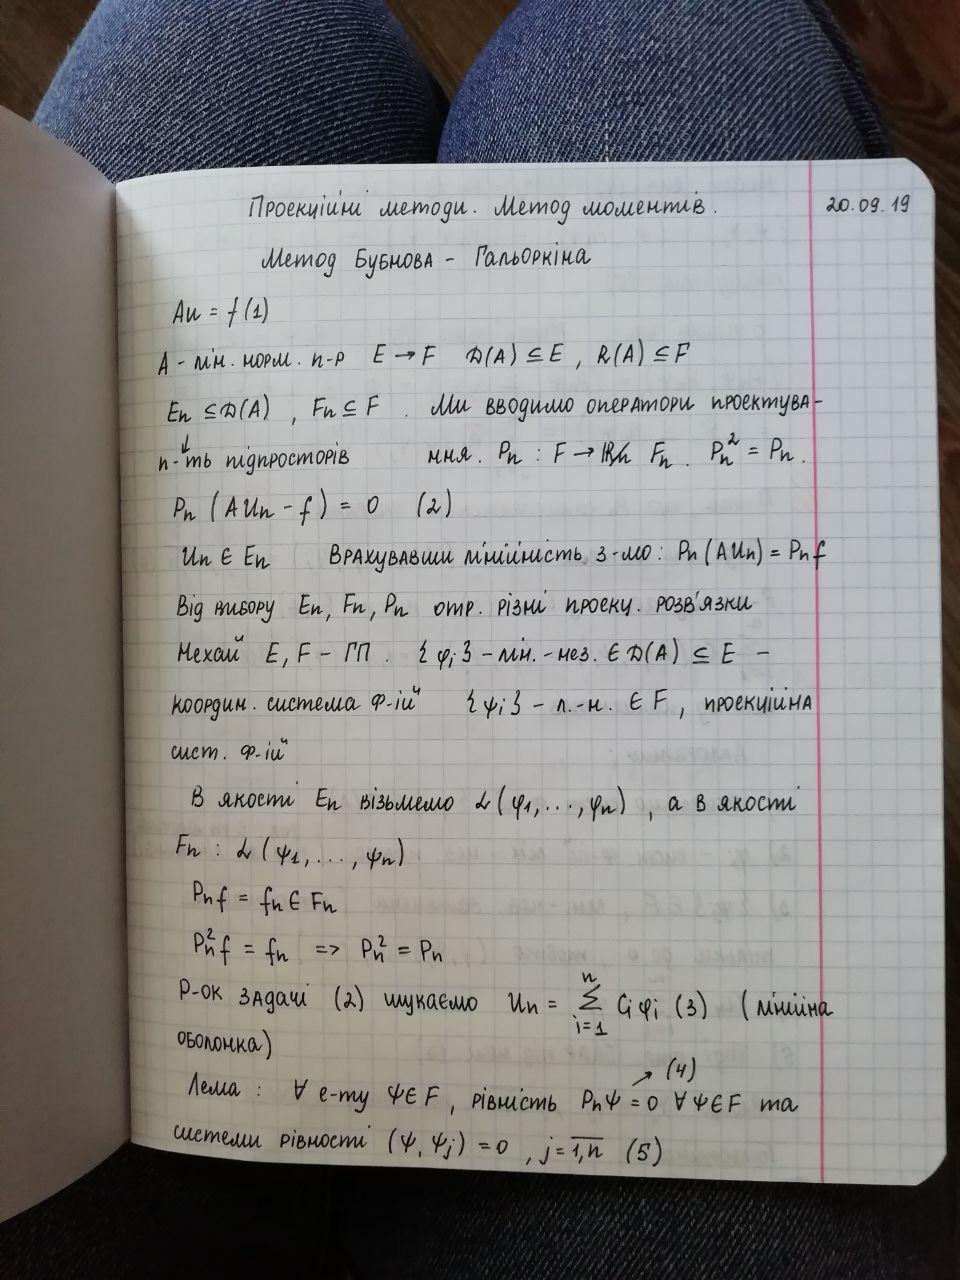 Проекційні методи. Метод моментів. 20.09.19
Метод Бубнова - Гальоркіна
Au = f (1)
A - лін. норм. п-р E → F D(A) ⊆ E, R(A) ⊆ F
En ⊆ D(A), Fn ⊆ F. Ми вводимо оператори проектува-
п-ть підпросторів ння. Pn : F → Fn. Pn² = Pn.
Pn (AUn - f) = 0 (2)
Un ∈ En Врахувавши лінійність з-мо: Pn(AUn) = Pnf
Від вибору En, Fn, Pn отр. різні проекц. розв'язки
Нехай E, F - ГП. {φi} - лін.-нез. ∈ D(A) ⊆ E -
координ. система ф-ій {ψi} - л.-н. ∈ F, проекційна
сист. ф-ій
В якості En візьмемо L(φ1,...,φn), а в якості
Fn : L(ψ1,...,ψn)
Pnf = fn ∈ Fn
Pn²f = fn => Pn² = Pn
Р-ок задачі (2) шукаємо Un = ∑ i=1 n Ciφi (3) (лінійна
оболонка)
Лема : ∀ е-ту Ψ ∈ F, рівність PnΨ = 0 → (4) ∀ Ψ ∈ F та
системи рівності (Ψ, Ψj) = 0, j = 1,n (5)